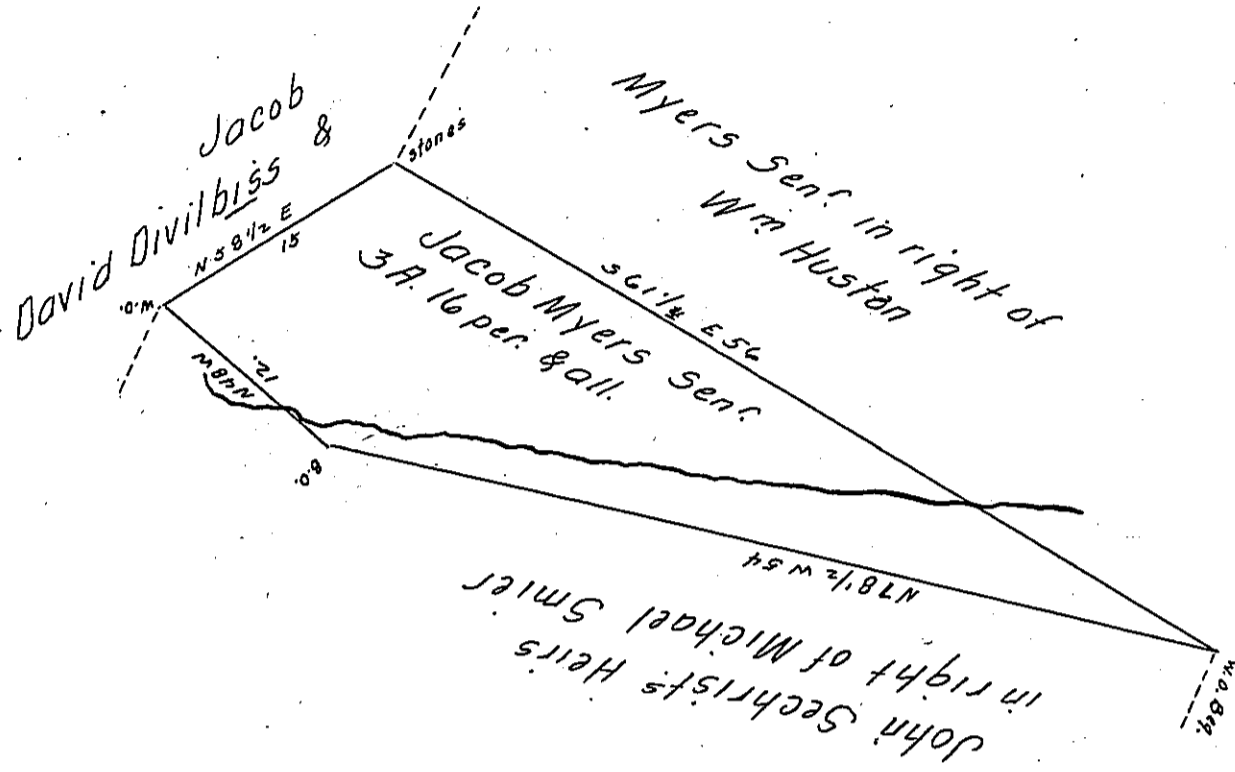 Jacob
&
David Divilbiss
Myers Senr. in right of
Wm. Huston
stones
N 58 1/2 E
15
Jacob Myers Senr.
3 A. 16 per. & all.
S 61 1/4 E 56
W.O.
12.
N48W
B.O.
N78 1/2 W 54
W.O. Beg.
John Sechrist's Heirs
in right of Michael Smier